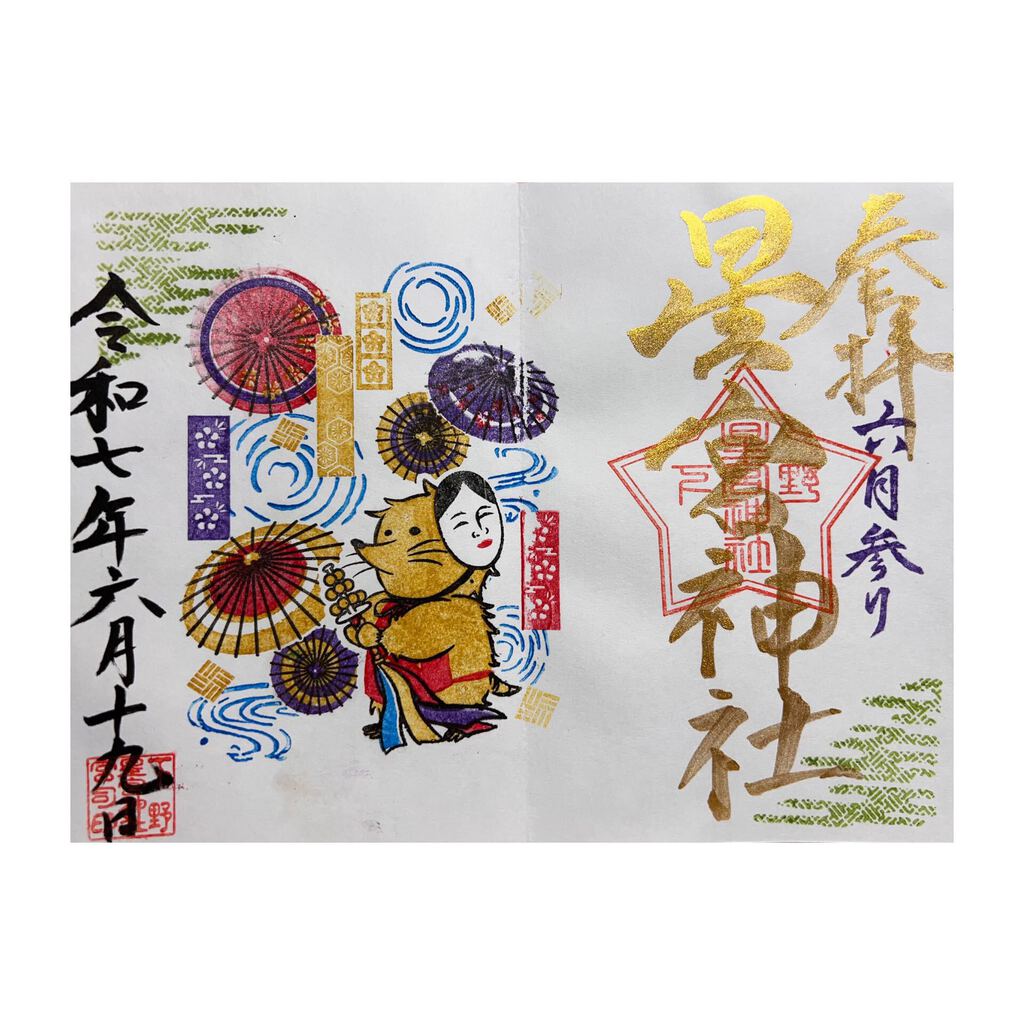 奉拝
六月参り
星宮神社
下野
星宮神社
令和七年六月十九日